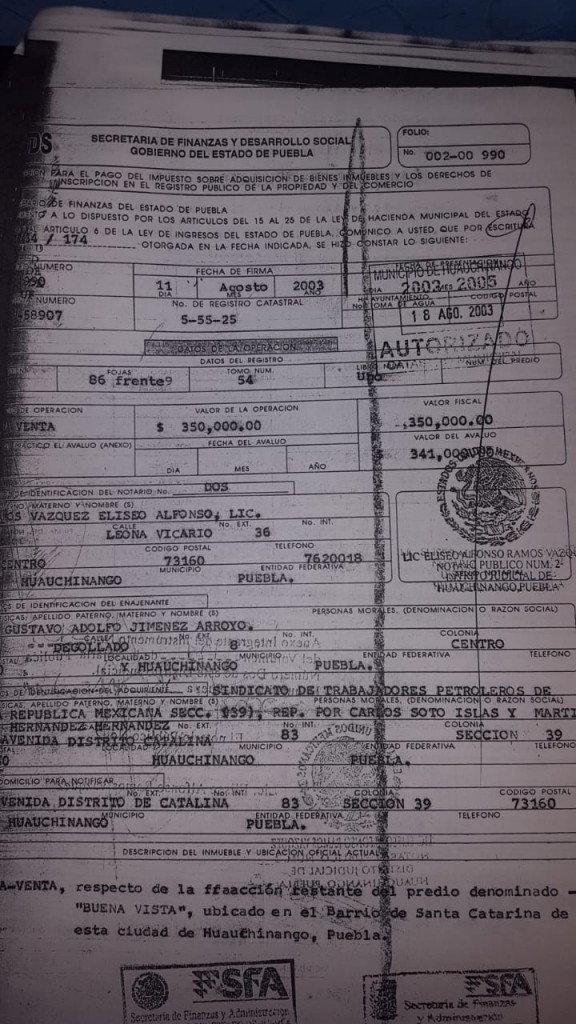 DS
SECRETARIA DE FINANZAS Y DESARROLLO SOCIAL
GOBIERNO DEL ESTADO DE PUEBLA
FOLIO:
No. 002-00 990
PARA EL PAGO DEL IMPUESTO SOBRE ADQUISICION DE BIENES INMUEBLES Y LOS DERECHOS DE
INSCRIPCION EN EL REGISTRO PUBLICO DE LA PROPIEDAD Y DEL COMERCIO
DE FINANZAS DEL ESTADO DE PUEBLA
A LO DISPUESTO POR LOS ARTICULOS DEL 15 AL 25 DE LA LEY DE HACIENDA MUNICIPAL DEL ESTADO
ARTICULO 6 DE LA LEY DE INGRESOS DEL ESTADO DE PUEBLA, COMUNICO A USTED, QUE POR ESCRITURA
/ 174 OTORGADA EN LA FECHA INDICADA, SE HIZO CONSTAR LO SIGUIENTE:
NUMERO
FECHA DE FIRMA
MUNICIPIO DE HUAUCHINANGO
11 Agosto 2003
DIA MES AÑO
2003 2005
DIA MES AÑO
NUMERO
No. DE REGISTRO CATASTRAL
H. AYUNTAMIENTO
TOMA DE AGUA
CODIGO POSTAL
-58907
5-55-25
18 AGO. 2003
AUTORIZADO
DATOS DE LA OPERACION
DATOS DEL REGISTRO
FOJAS
TOMO NUM.
NUM. DEL PREDIO
86 frente9
54
DE OPERACION
VALOR DE LA OPERACION
VALOR FISCAL
VENTA
$ 350,000.00
350,000.00
PRACTICO EL AVALUO (ANEXO)
FECHA DEL AVALUO
VALOR DEL AVALUO
DIA MES AÑO
341,000
ESTADOS UNIDOS MEXICANOS
DE IDENTIFICACION DEL NOTARIO No. DOS
MATERNO Y NOMBRE (S)
VAZQUEZ ELISEO ALFONSO, LIC.
CALLE No. EXT. No. INT.
LEONA VICARIO 36
CODIGO POSTAL TELEFONO
CENTRO 73160 7620018
MUNICIPIO ENTIDAD FEDERATIVA
HUAUCHINANGO PUEBLA.
LIC ELISEO ALFONSO RAMOS VAZQ
NOTARIO PUBLICO NUM. 2
DISTRITO JUDICIAL DE
HUAUCHINANGO, PUEBLA
DE IDENTIFICACION DEL ENAJENANTE
APELLIDO PATERNO, MATERNO Y NOMBRE (S)
PERSONAS MORALES, (DENOMINACION O RAZON SOCIAL)
GUSTAVO ADOLFO JIMENEZ ARROYO.
CALLE No. EXT. No. INT. COLONIA
DEGOLLADO 8 CENTRO
LOCALIDAD MUNICIPIO ENTIDAD FEDERATIVA TELEFONO
HUAUCHINANGO PUEBLA.
DE IDENTIFICACION DEL ADQUIRENTE
SINDICATO DE TRABAJADORES PETROLEROS DE
APELLIDO PATERNO, MATERNO Y NOMBRE (S)
PERSONAS MORALES, (DENOMINACION O RAZON SOCIAL)
A REPUBLICA MEXICANA SECC. (39), REP. POR CARLOS SOTO ISLAS Y MARTI
HERNANDEZ HERNANDEZ No. EXT. No. INT. COLONIA
AVENIDA DISTRITO CATALINA 83 SECCION 39
LOCALIDAD MUNICIPIO ENTIDAD FEDERATIVA TELEFONO
HUAUCHINANGO PUEBLA.
DOMICILIO PARA NOTIFICAR
No. EXT. No. INT. COLONIA CODIGO POSTAL
VENIDA DISTRITO DE CATALINA 83 SECCION 39 73160
MUNICIPIO ENTIDAD FEDERATIVA TELEFONO
HUAUCHINANGO PUEBLA.
DESCRIPCION DEL INMUEBLE Y UBICACION OFICIAL ACTUAL
A-VENTA, respecto de la ffaacción restante del predio denominado -
"BUENA VISTA", ubicado en el Barrio de Santa Catarina de
esta ciudad de Huauchinango, Puebla.
SFA
Secretaría de Finanzas y Administración
SFA
Secretaría de Finanzas
y Administración